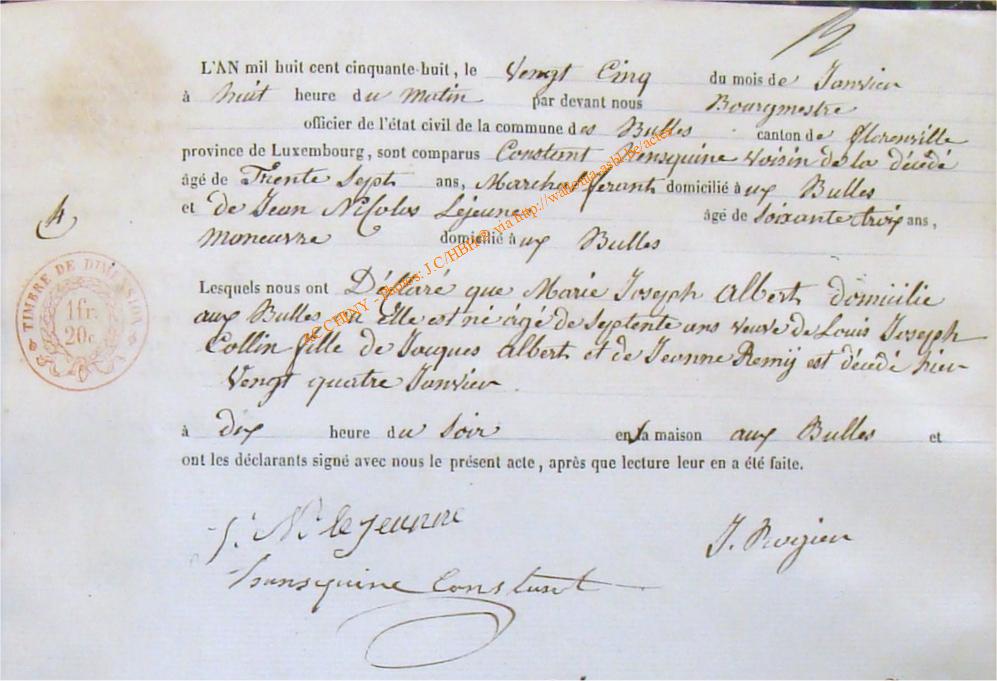 L'AN mil huit cent cinquante-huit, le Vengt Cinq du mois de Janvier
à huit heure du Matin par devant nous Bourgmestre
officier de l'état civil de la commune des Bulles canton de Florenville
province de Luxembourg, sont comparus Constant Voisin de la décédé
âgé de Trente Sept ans, Marchal ferant domicilié à ux Bulles
et de Jean Nicolas Lejeune âgé de Soixante trois ans,
Moneuvre domicilié à ux Bulles
4
TIMBRE DE DIMENSION
1 fr.
20 c.
Lesquels nous ont Déclaré que Marie Joseph Albert domicilie
aux Bulles ou Elle est né agé de Septente ans veuve de Louis Joseph
Collin fille de Jacques Albert et de Jeanne Remy est décédé hier
Vengt quatre Janvier
à dix heure du Soir en la maison aux Bulles et
ont les déclarants signé avec nous le présent acte, après que lecture leur en a été faite.
J. N. le jeunne
J. Rogier
Constant
ACCHINY - Photos: J.C/HBH® via http://wallonia-asbl.be/actes